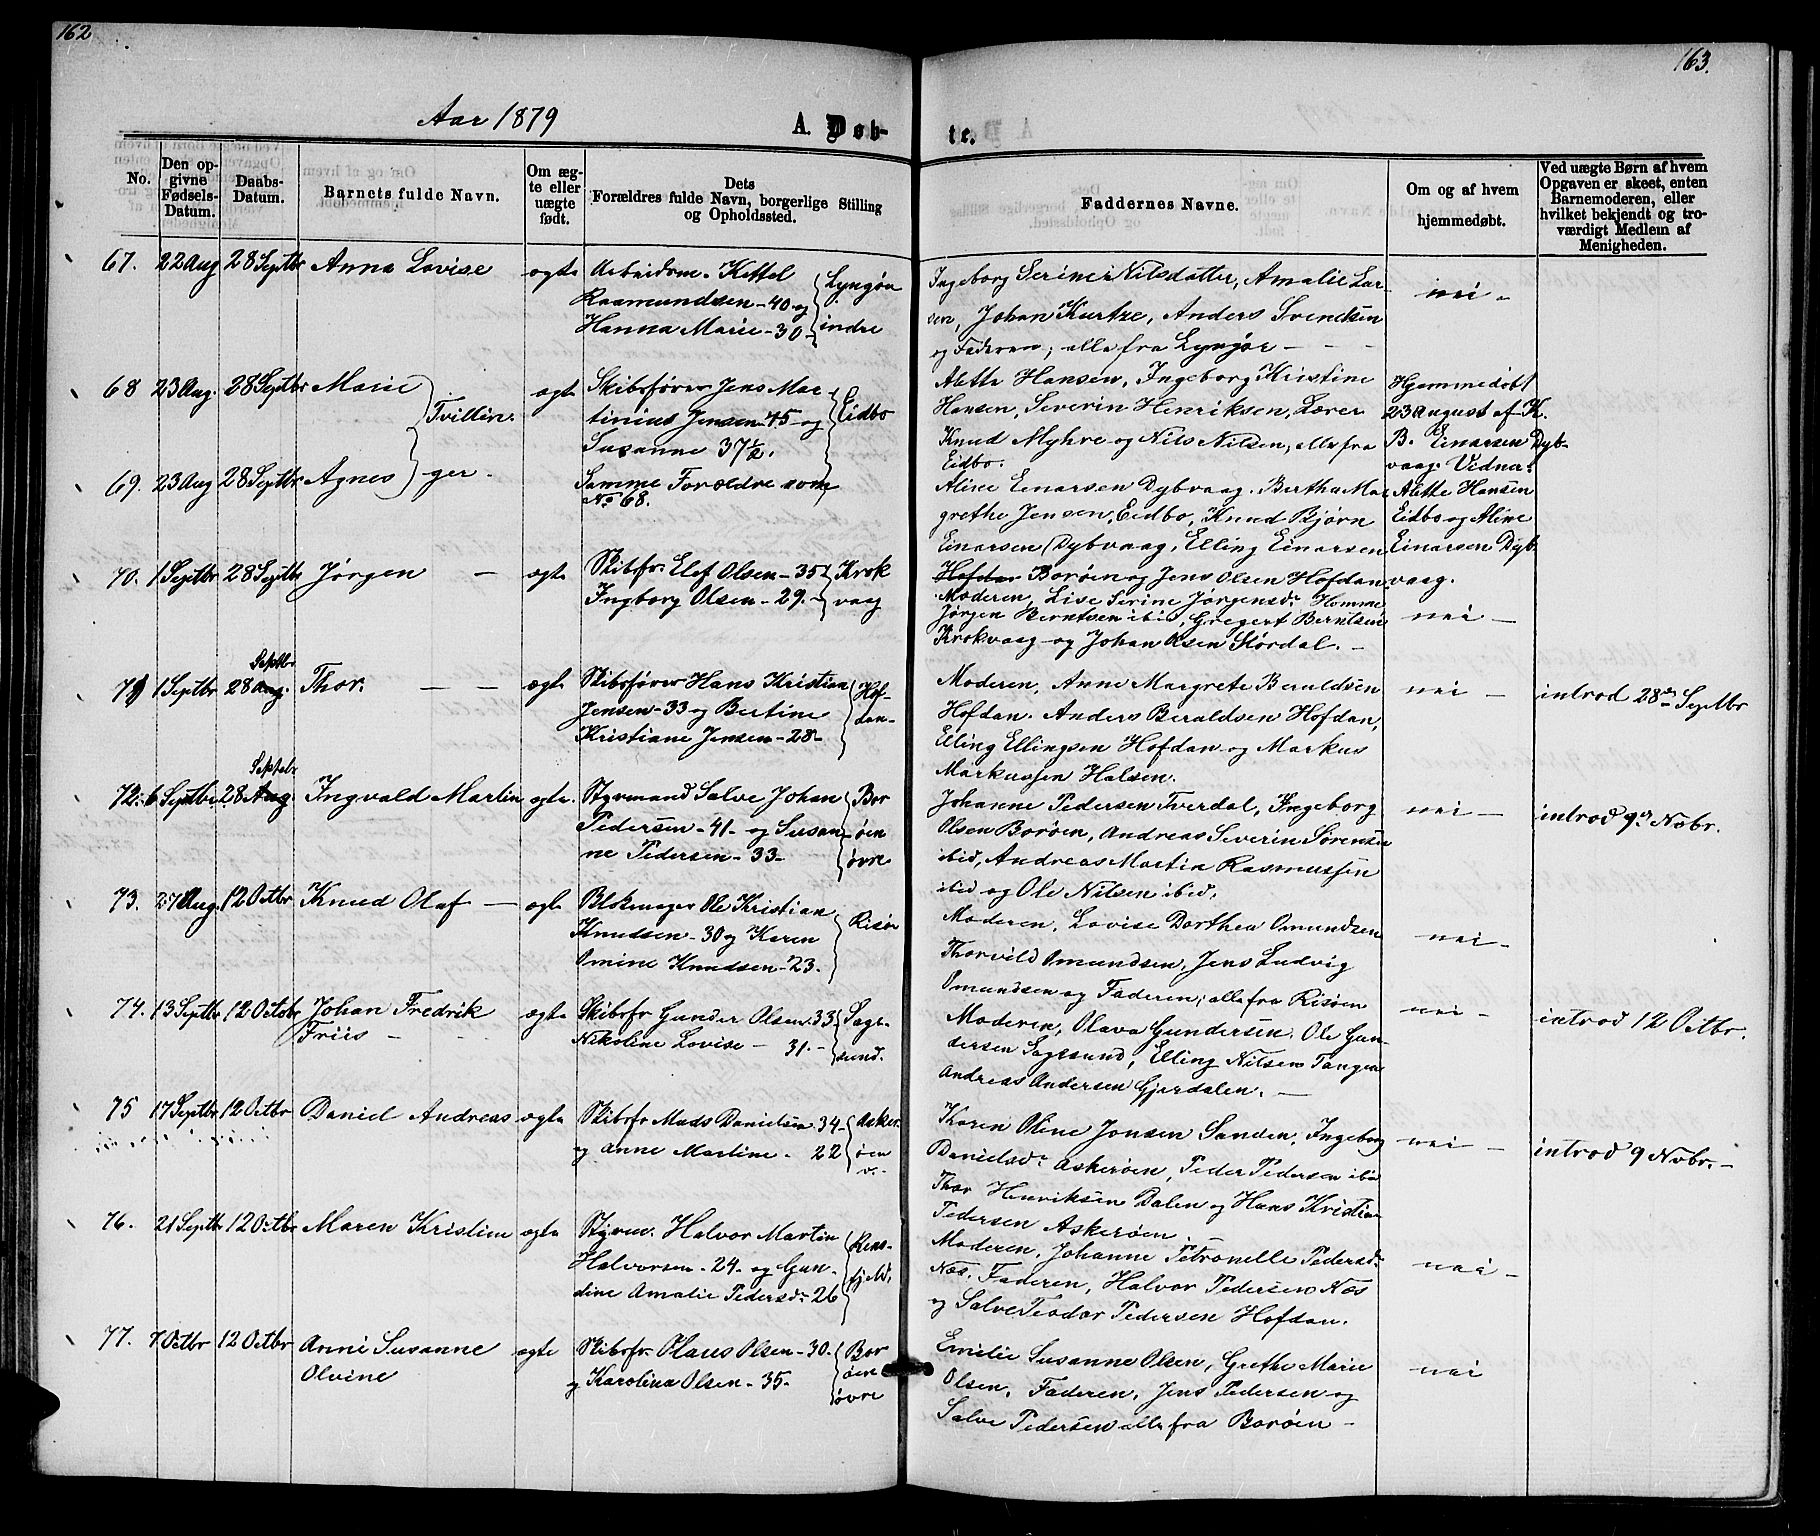 162
163.
Aar 1879
A. Døb-
te.
No.
Den op-
givne
Fødsels-
Datum.
Daabs-
Datum.
Barnets fulde Navn.
Om æg-
te eller
uægte
født.
Dets
Forældres fulde Navn, borgerlige Stilling
og Opholdssted.
Faddernes Navne.
Om og af hvem
hjemmedøbt.
Ved uægte Børn af hvem
Opgaven er skeet, enten
Barnemoderen, eller
hvilket bekjendt og tro-
værdigt Medlem af
Menigheden.
67. 22 Aug 28 Septbr Anna Lovise ægte Arbeidsm. Kittel
Rasmundsen - 40 og
Hanna Marie - 30 -
Lyngør
indre
Ingeborg Serine Nilsdatter, Amalie Lar-
sen, Johan Kurtze, Anders Svendsen
og Faderen; alle fra Lyngør -
nei -
68 23 Aug. 28 Septbr Marie
Tvillin-
ægte Skibsfører Jens Mar-
tinius Jensen - 45 - og
Susanne 37½.
Eidbo
Alette Hansen, Ingeborg Kristine
Hansen, Severin Henriksen, Lærer
Knud Myhre og Nils Nilsen, alle fra
Eidbo.
Hjemmedøbt
23 August af K.
B. Einarsen Dyb-
vaag. Vidner:
69. 23 Aug 28 Septbr Agnes
ger -
Samme Forældre som
No 68.
Aline Einarsen Dybvaag. Bertha Mar
grethe Jensen, Eidbo, Knud Bjørn
Einarsen Dybvaag, Elling Einarsen
Hofdan Borøen og Jens Olsen Hofdan
Alette Hansen
Eidbo og Aline
Einarsen Dyb-
vaag.
70. 1 Septbr 28 Septbr Jørgen - ægte Skibsfr. Elef Olsen - 35
Ingborg Olsen - 29. -
Krok
vaag
Moderen, Lise Serine Jørgensdr Homme
Jørgen Berntsen ibid, Gregert Berntsen
Krokvaag og Johan Olsen Størdal. -
nei -
71 1 Septbr 28 Septbr Aug. Thor. - - ægte Skibsfører Hans Kristian
Jensen - 33 og Bertine
Kristiane Jensen - 28 -
Hof-
dan -
Moderen, Anne Margrete Beraldsen
Hofdan. Anders Beraldsen Hofdan,
Elling Ellingsen Hofdan og Markus
Markussen Halsen.
nei -
introd 28de Septbr
72. 6 Septbr. 28 Septbr Aug Ingvald Martin ægte. Styrmand Salve Johan
Pedersen - 41 - og Susan-
ne Pedersen - 33 -
Bor
øen
øvre
Johanne Pedersen Tverdal, Ingeborg
Olsen Borøen, Andreas Severin Sørensen
ibid, Andreas Martin Rasmussen
ibid og Ole Nilsen ibid,
nei -
introd 9de Nobr.
73. 27 Aug. 12 Octbr Knud Olaf - ægte Blokmager Ole Kristian
Knudsen - 30 og Karen
Omine Knudsen - 23.
Risør
Moderen, Lovise Dorthea Omundsen
Thorvild Omundsen, Jens Ludvig
Omundsen og Faderen, alle fra Risøen
nei -
74. 13 Septbr 12 Octobr Johan Fredrik
Friis -
ægte Skibsfr Gunder Olsen. 33
Nikoline Lovise - 31. -
Sage-
sund.
Moderen, Olava Gundersen. Ole Gun-
dersen Sagesund, Elling Nilsen Tangen
Andreas Andersen Gjerdalen. -
nei -
introd 12 Octbr.
75 17 Septbr 12 Octbr Daniel Andreas ægte Skibsfr Mads Danielsen. 34 -
og Anne Martine. - 22
Asker
øen
v.
Karen Oline Jonsen Sanden, Ingeborg
Danielsdr Askerøen, Peder Pedersen ibid
Thor Henriksen Dalen og Hans Kristian
Pedersen Askerøen
nei -
introd 9 Nobr. -
76. 21 Septbr 12 Octbr Maren Kristine ægte Styrm. Halvor Martin
Halvorsen - 24 - og Gun-
dine Amalie Pedersdr 26
Rens-
fjeld,
Moderen, Johanne Petronelle Pedersdr
Næs. Faderen, Halvor Pedersen Næs
og Salve Teodor Pedersen Hofdan.
nei -
77. 7 Octbr 12 Octbr Anne Susanne
Olvine
ægte Skibsfr. Olaus Olsen - 30.
og Karolina Olsen - 35 -
Bor
øen
øvre
Emilie Susanne Olsen, Grethe Marie
Olsen, Faderen, Jens Pedersen og
Salve Pedersen alle fra Borøen -
nei